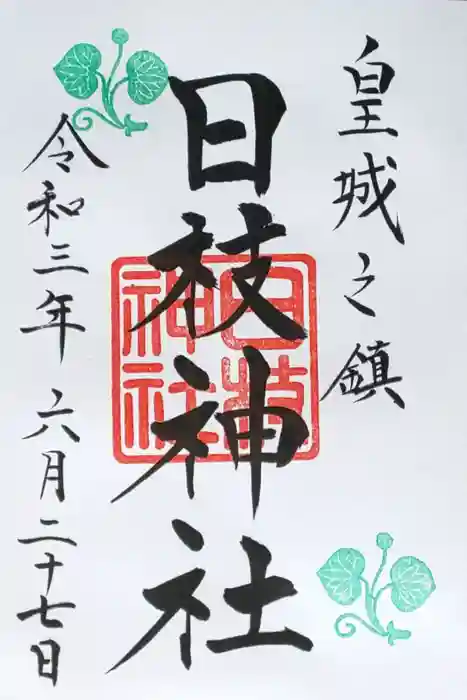 皇城之鎮
日枝神社
日枝神社
令和三年 六月二十七日